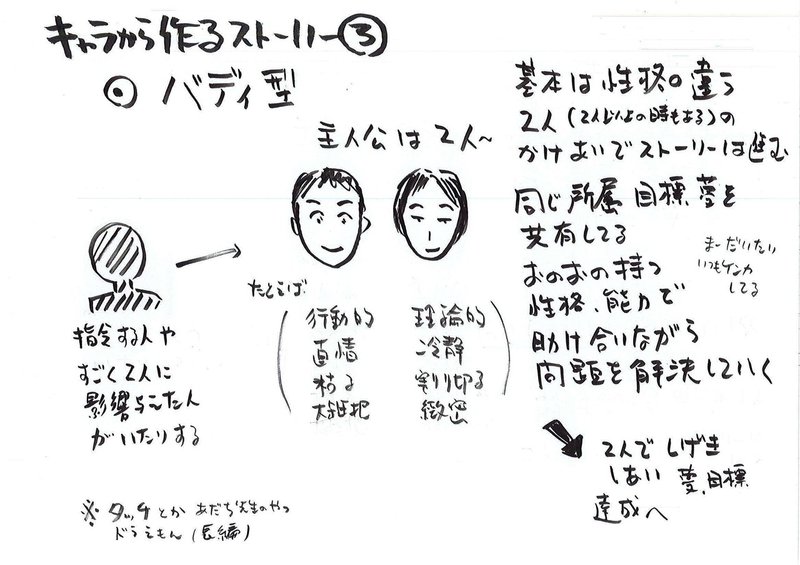 キャラから作るストーリー③
◉ バディ型
主人公は2人～
指令する人や
すごく2人に
影響与えた人
がいたりする
たとえば
行動的
直情
粘る
大雑把
理論的
冷静
割り切る
緻密
基本は性格の違う
2人(2人以上の時もある)の
かけあいでストーリーは進む
同じ所属 目標 夢を
共有してる
おのおの持つ
性格、能力で
助け合いながら
問題を解決していく
まーだいたい
いつもケンカ
してる
2人でしげき
しあい 夢、目標
達成へ
※ タッチとか あだち先生のやつ
ドラえもん(長編)